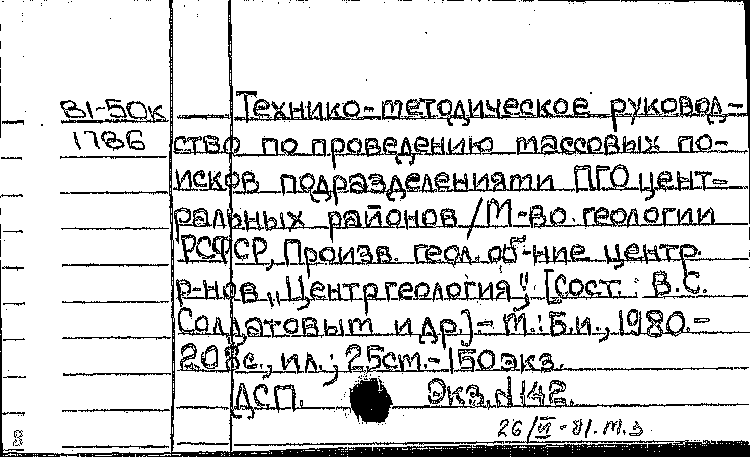 81-50к
1786
Технико-методическое руковод-
ство по проведению массовых по-
исков подразделениями ПГО цент-
ральных районов / М-во геологии
РСФСР, Произв. геол. об-ние центр.
р-нов "Центргеология"; [Сост.: В.С.
Солдатовым и др.] - М.: Б.и., 1980. -
208с., ил.; 25см. - 150экз.
ДСП. Экз. N142.
26/VI-81. м.з